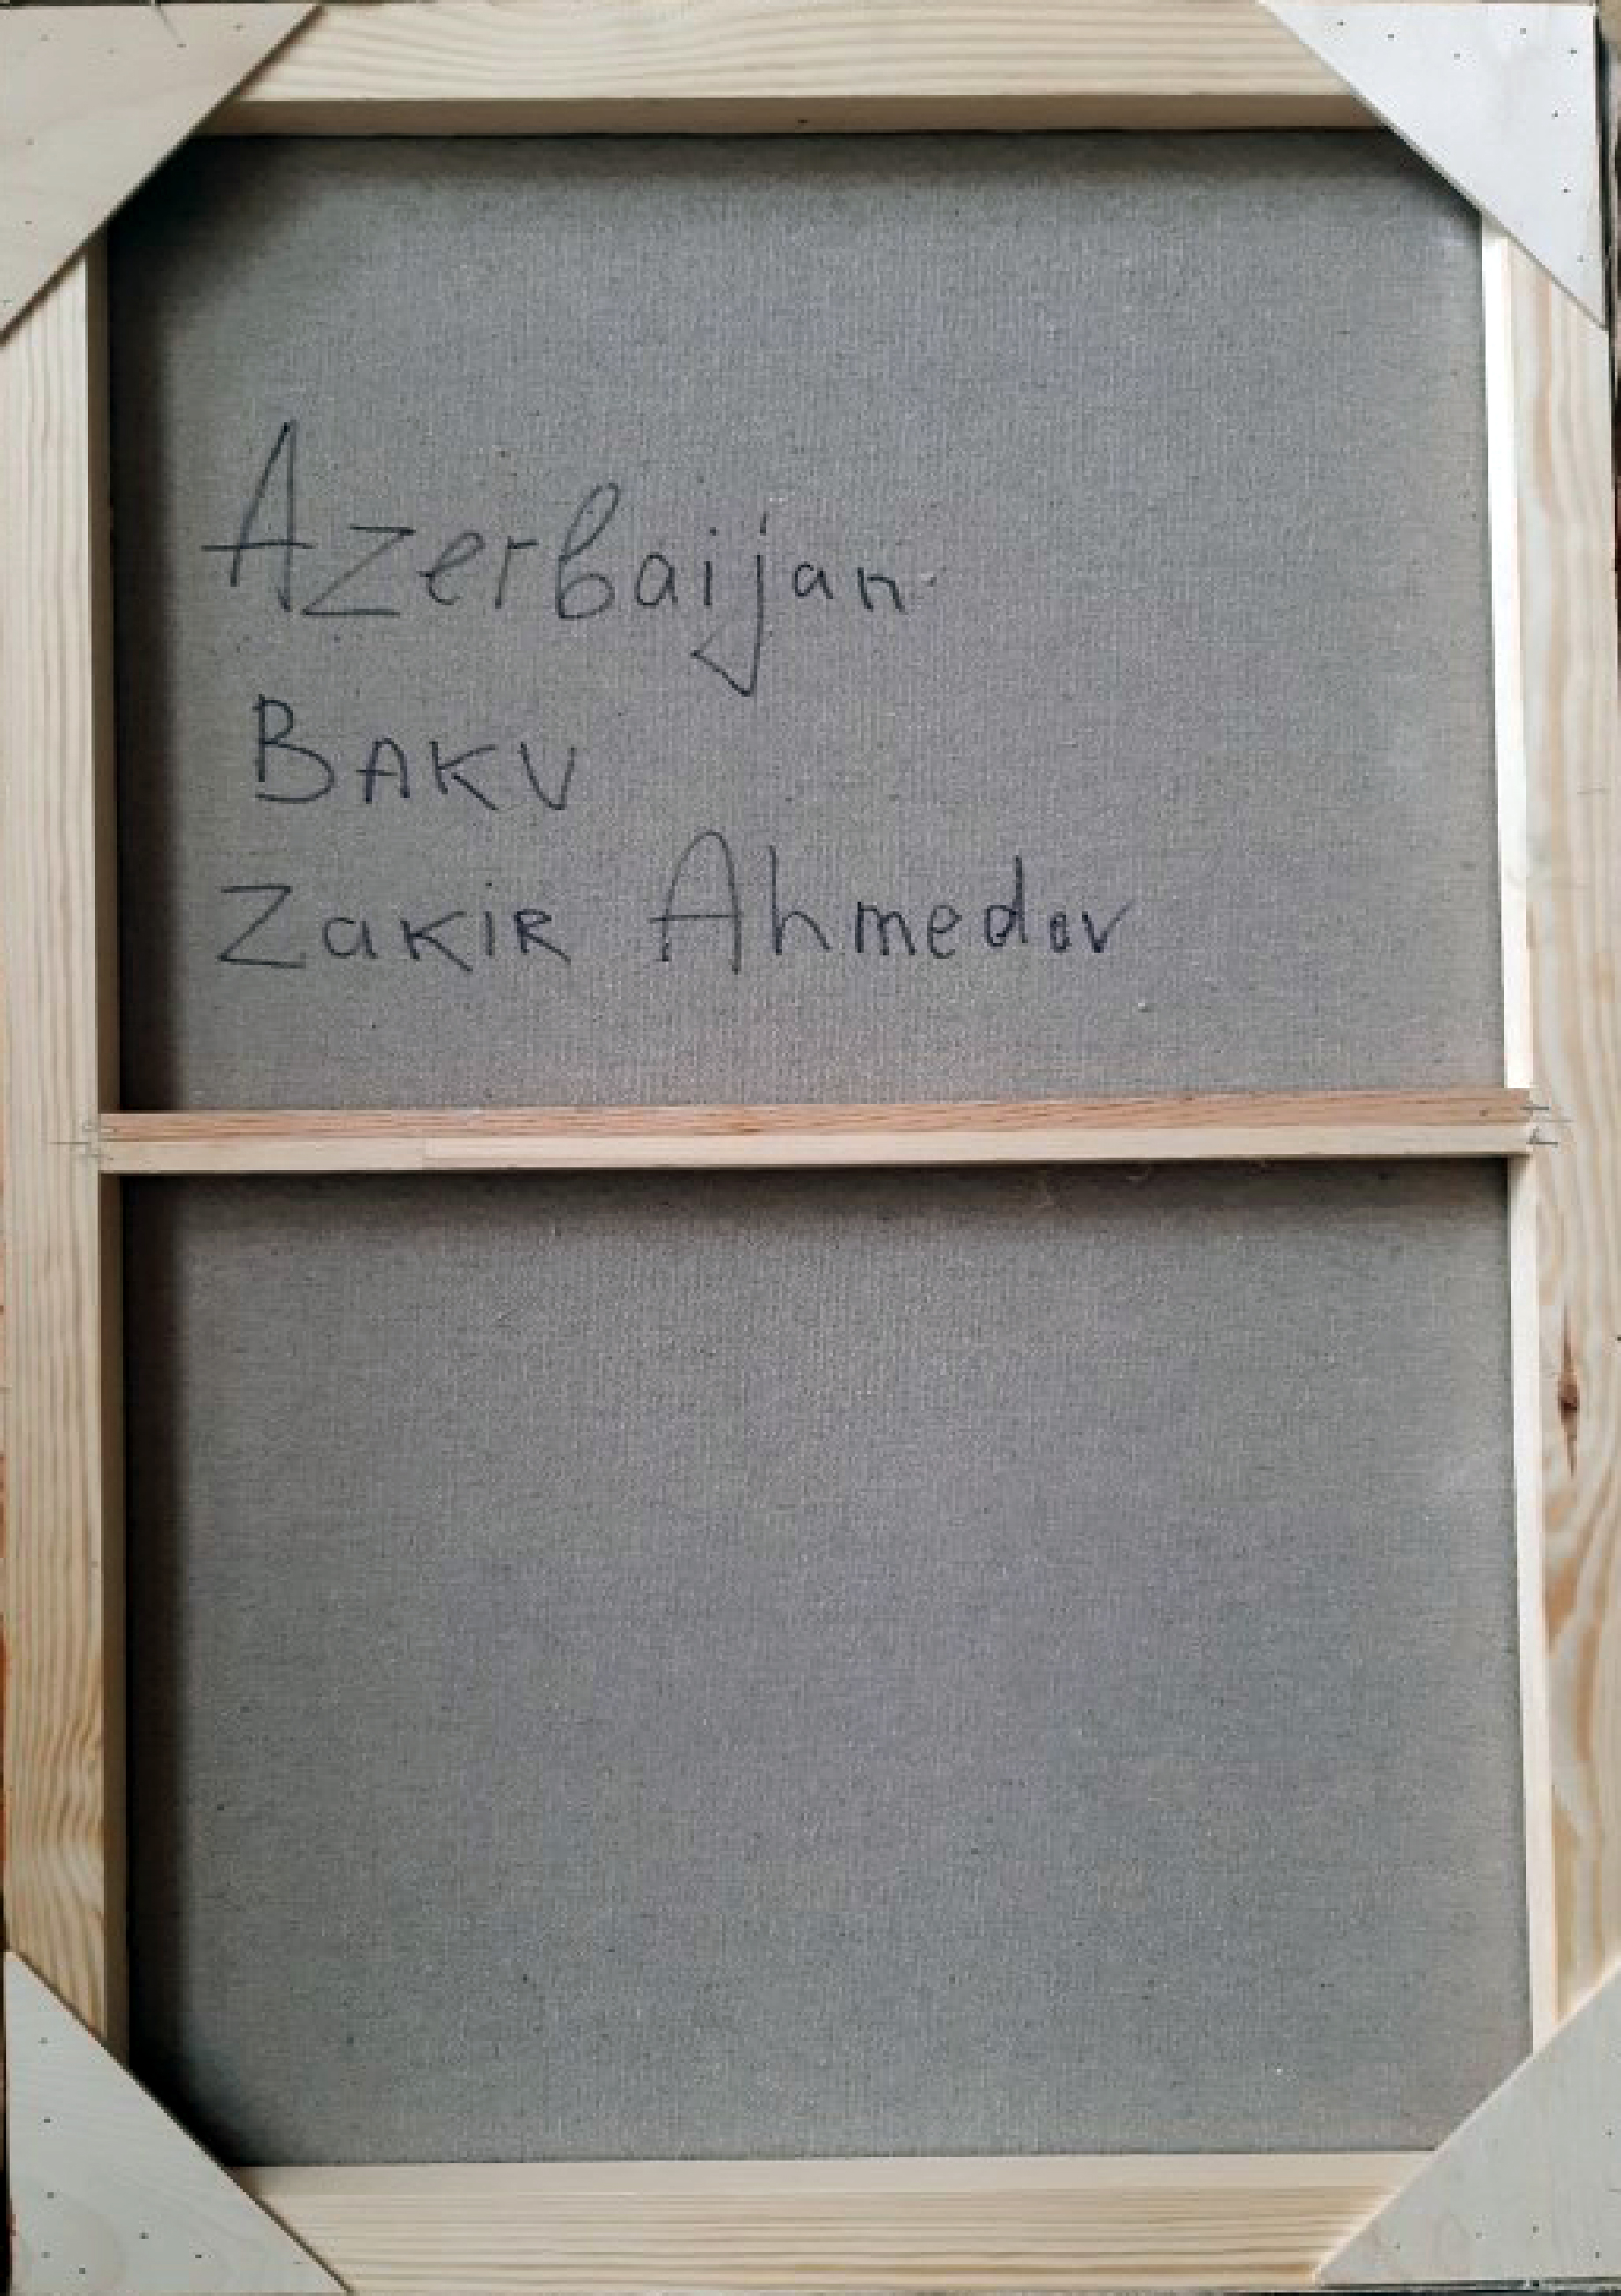 Azerbaijan
BAKU
ZakiR Ahmedov